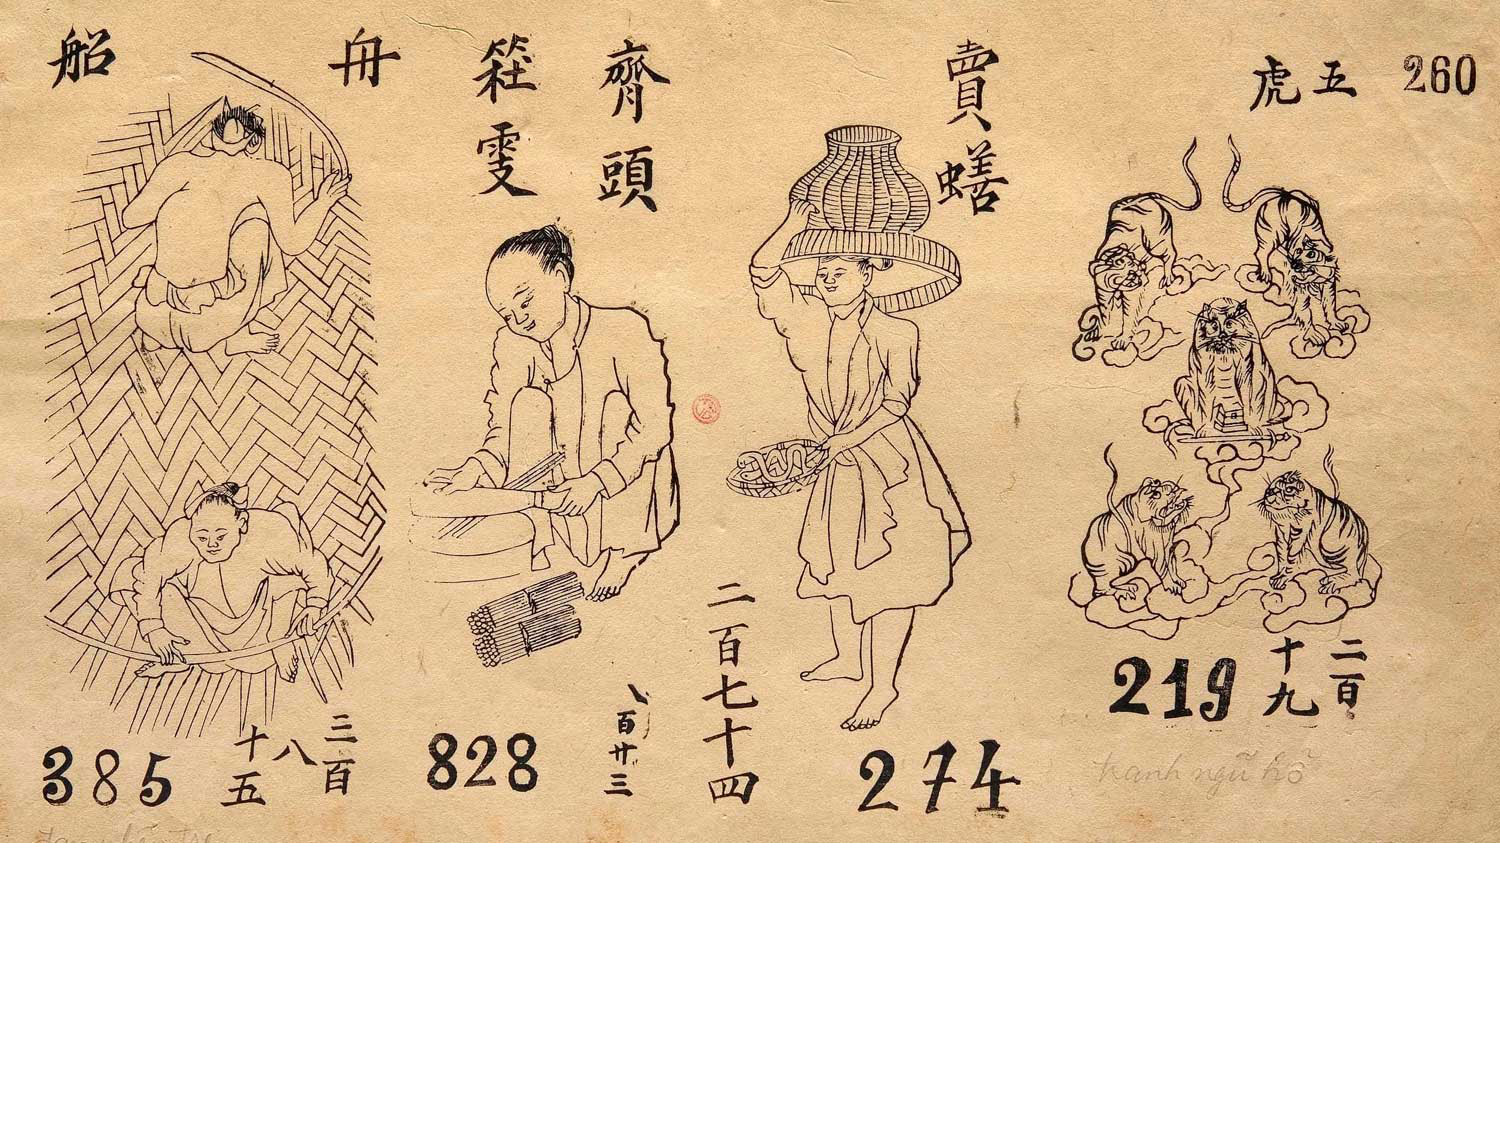 260
五虎
二百
十九
219
tranh ngũ hổ
賣蟮
274
二百七十四
齊頭
八百廿三
828
舟船
三百
八
十五
385